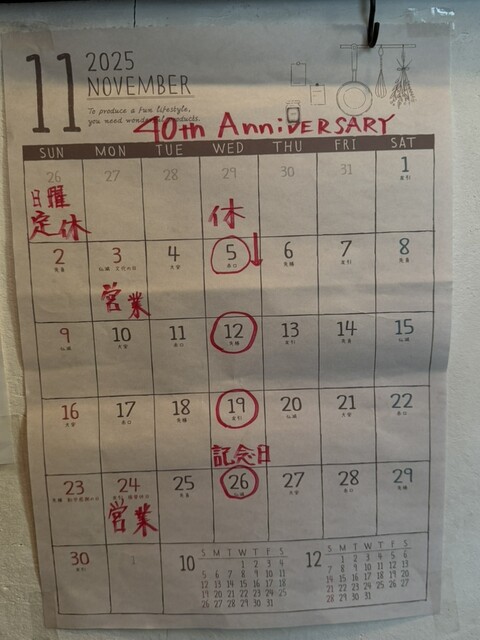 11
2025
NOVEMBER
To produce a fun lifestyle,
you need wonderful products.
40th AnniVERSARY
SUN MON TUE WED THU FRI SAT
26 27 28 29 30 31 1
日曜
定休
休
2 3 4 5 6 7 8
営業
9 10 11 12 13 14 15
16 17 18 19 20 21 22
記念日
23 24 25 26 27 28 29
営業
30 1
10
S M T W T F S
1 2 3 4
5 6 7 8 9 10 11
12 13 14 15 16 17 18
19 20 21 22 23 24 25
26 27 28 29 30 31
12
S M T W T F S
1 2 3 4 5 6
7 8 9 10 11 12 13
14 15 16 17 18 19 20
21 22 23 24 25 26 27
28 29 30 31